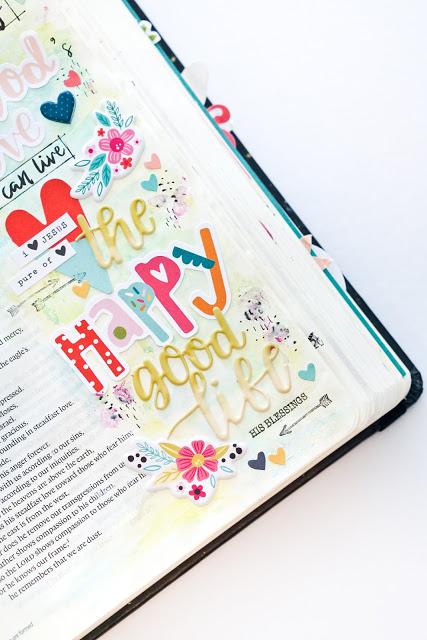 God's
love
can live
i ♥ JESUS
pure of ♥
the
Happy
good
life
HIS BLESSINGS
mercy,
the eagle's.
gracious,
ounding in steadfast love.
his anger forever.
with us according to our sins,
according to our iniquities.
the heavens are above the earth,
is his steadfast love toward those who fear him;
the east is from the west,
does he remove our transgressions from us
ather shows compassion to his children,
so the LORD shows compassion to those who fear
or he knows our frame;
he remembers that we are dust.